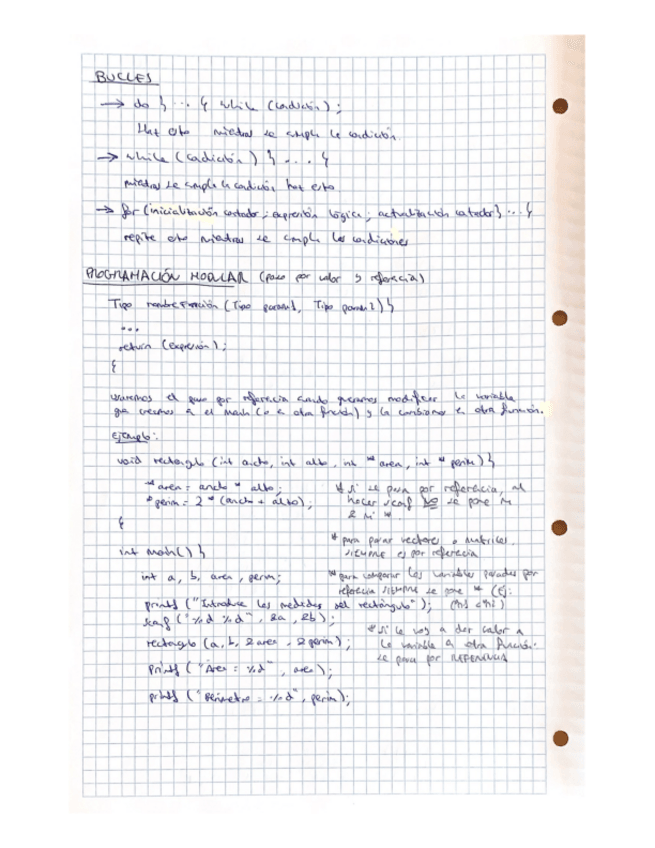 BUCLES
→ do } ... { while (condición);
Haz esto mientras se cumple la condición.
→ while (condición) } ... {
mientras se cumple la condición haz esto
→ for (inicialización contador; expresión lógica; actualización contador} ... {
repite esto mientras se cumple las condiciones
PROGRAMACIÓN MODULAR (paso por valor y referencia)
Tipo nombreFunción (Tipo param1, Tipo param2) }
...
return (expresión);
{
usaremos el paso por referencia cuando queramos modificar la variable
que creamos en el main (o en otra función) y la cambiamos en otra función.
ejemplo:
void rectangulo (int ancho, int alto, int *area, int *perim) }
*area = ancho * alto;
*perim = 2 * (ancho + alto);
{
* Si se pasa por referencia, al
hacer scanf NO se pone ni
& ni *
* para pasar vectores o matrices
SIEMPRE es por referencia
int main() }
int a, b, area, perim;
* para comparar las variables pasadas por
referencia SIEMPRE se pone * (Ej:
printf ("Introduce las medidas del rectángulo");
scanf ("%d %d", &a, &b);
rectangulo (a, b, &area, &perim);
* Si le voy a dar valor a
la variable en otra función.
se pasa por REFERENCIA
printf ("Area = %d", area);
printf ("Perimetro = %d", perim);